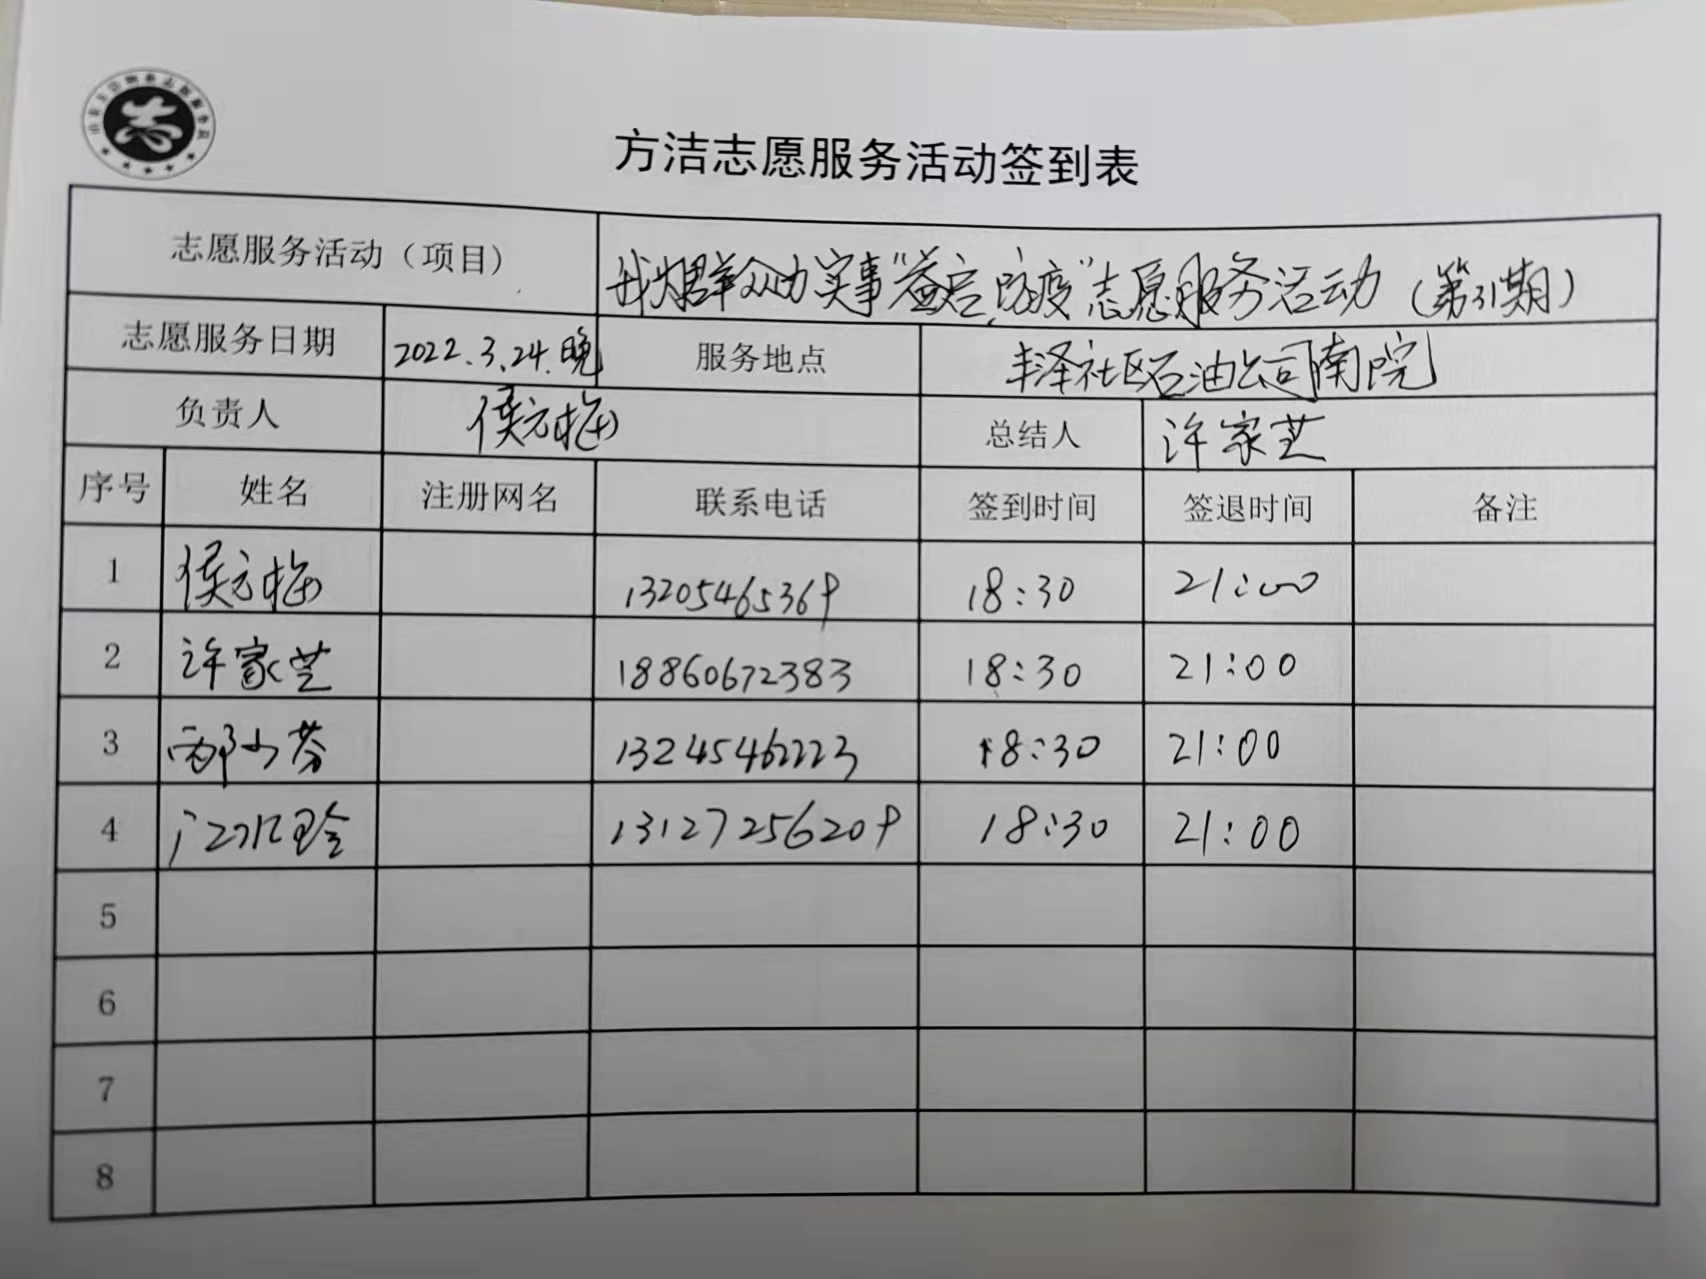 志
方洁志愿服务活动签到表
志愿服务活动（项目） 我为群众办实事"益启防疫"志愿服务活动（第31期）
志愿服务日期 2022.3.24.晚 服务地点 丰泽社区石油公司南院
负责人 侯方梅 总结人 许家芝
序号 姓名 注册网名 联系电话 签到时间 签退时间 备注
1 侯方梅 13205465369 18:30 21:00
2 许家芝 18860672383 18:30 21:00
3 邴小芬 13245462223 18:30 21:00
4 13127256209 18:30 21:00
5
6
7
8